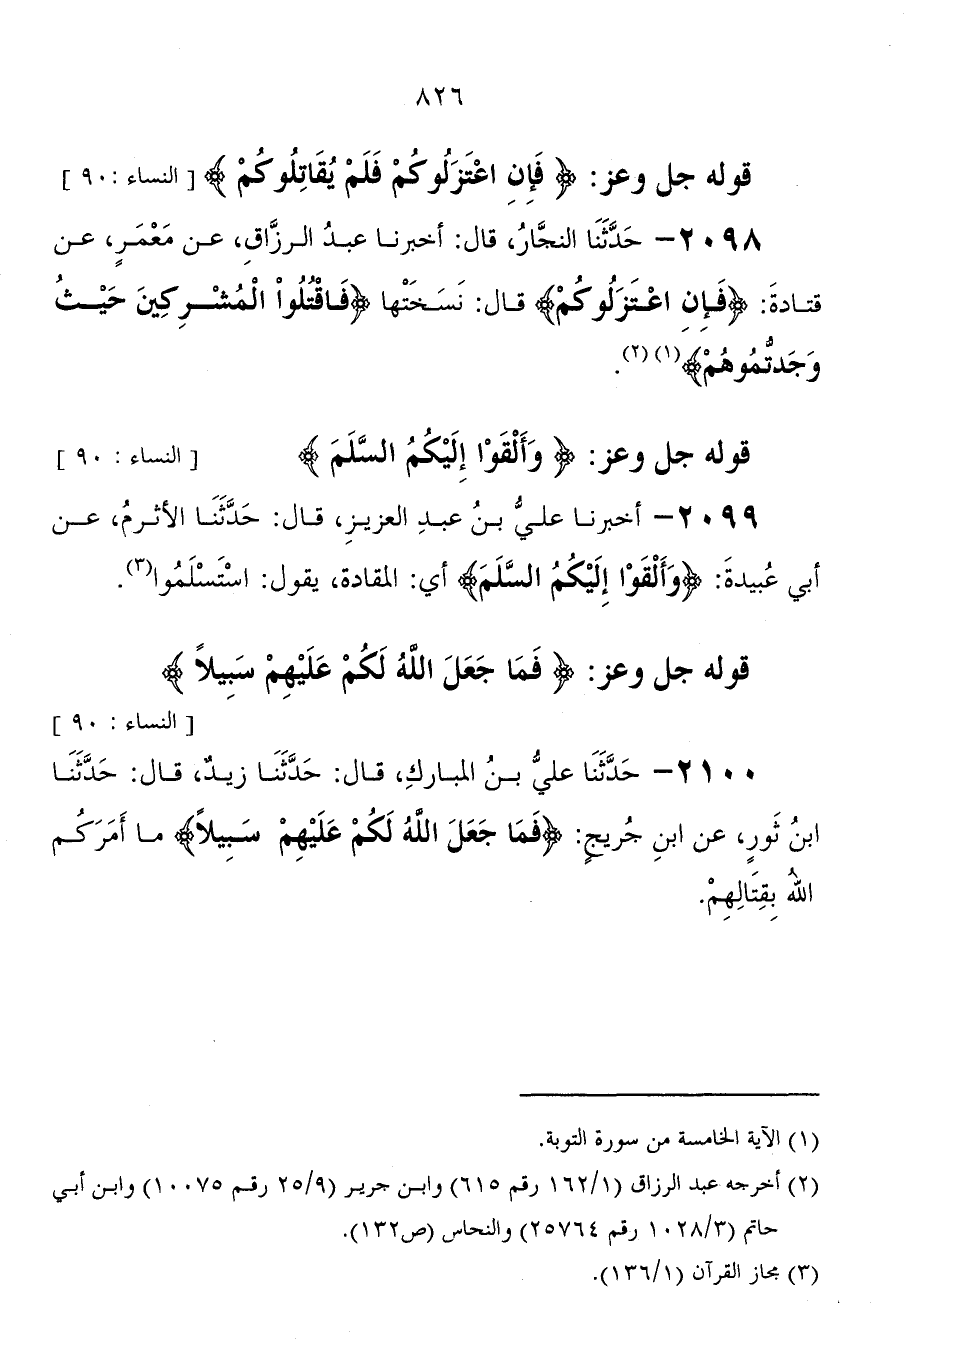 ٨٢٦
قوله جل وعز: ﴿ فَإِنِ اعْتَزَلُوكُمْ فَلَمْ يُقَاتِلُوكُمْ ﴾ [ النساء : ٩٠ ]
٢٠٩٨- حَدَّثَنَا النجَّارُ، قال: أخبرنا عبدُ الرزَّاقِ، عن مَعْمَرٍ، عن
قتادةَ: ﴿فَإِنِ اعْتَزَلُوكُمْ﴾ قال: نَسَخَتْها ﴿فَاقْتُلُواْ الْمُشْرِكِينَ حَيْثُ
وَجَدتُّمُوهُمْ﴾(١)(٢).
قوله جل وعز: ﴿ وَأَلْقَوْا إِلَيْكُمُ السَّلَمَ ﴾ [ النساء : ٩٠ ]
٢٠٩٩- أخبرنا عليُّ بنُ عبدِ العزيزِ، قال: حَدَّثَنَا الأثرمُ، عن
أبي عُبيدةَ: ﴿وَأَلْقَوْا إِلَيْكُمُ السَّلَمَ﴾ أي: المقادة، يقول: اسْتَسْلَمُوا(٣).
قوله جل وعز: ﴿ فَمَا جَعَلَ اللَّهُ لَكُمْ عَلَيْهِمْ سَبِيلاً ﴾
[ النساء : ٩٠ ]
٢١٠٠- حَدَّثَنَا عليُّ بنُ المباركِ، قال: حَدَّثَنَا زيدٌ، قال: حَدَّثَنَا
ابنُ ثَورٍ، عن ابنِ جُريجٍ: ﴿فَمَا جَعَلَ اللَّهُ لَكُمْ عَلَيْهِمْ سَبِيلاً﴾ ما أَمَرَكُم
اللهُ بِقِتَالِهِمْ.
(١) الآية الخامسة من سورة التوبة.
(٢) أخرجه عبد الرزاق (١٦٢/١ رقم ٦١٥) وابن جرير (٢٥/٩ رقم ١٠٠٧٥) وابن أبي
حاتم (١٠٢٨/٣ رقم ٢٥٧٦٤) والنحاس (ص١٣٢).
(٣) مجاز القرآن (١٣٦/١).